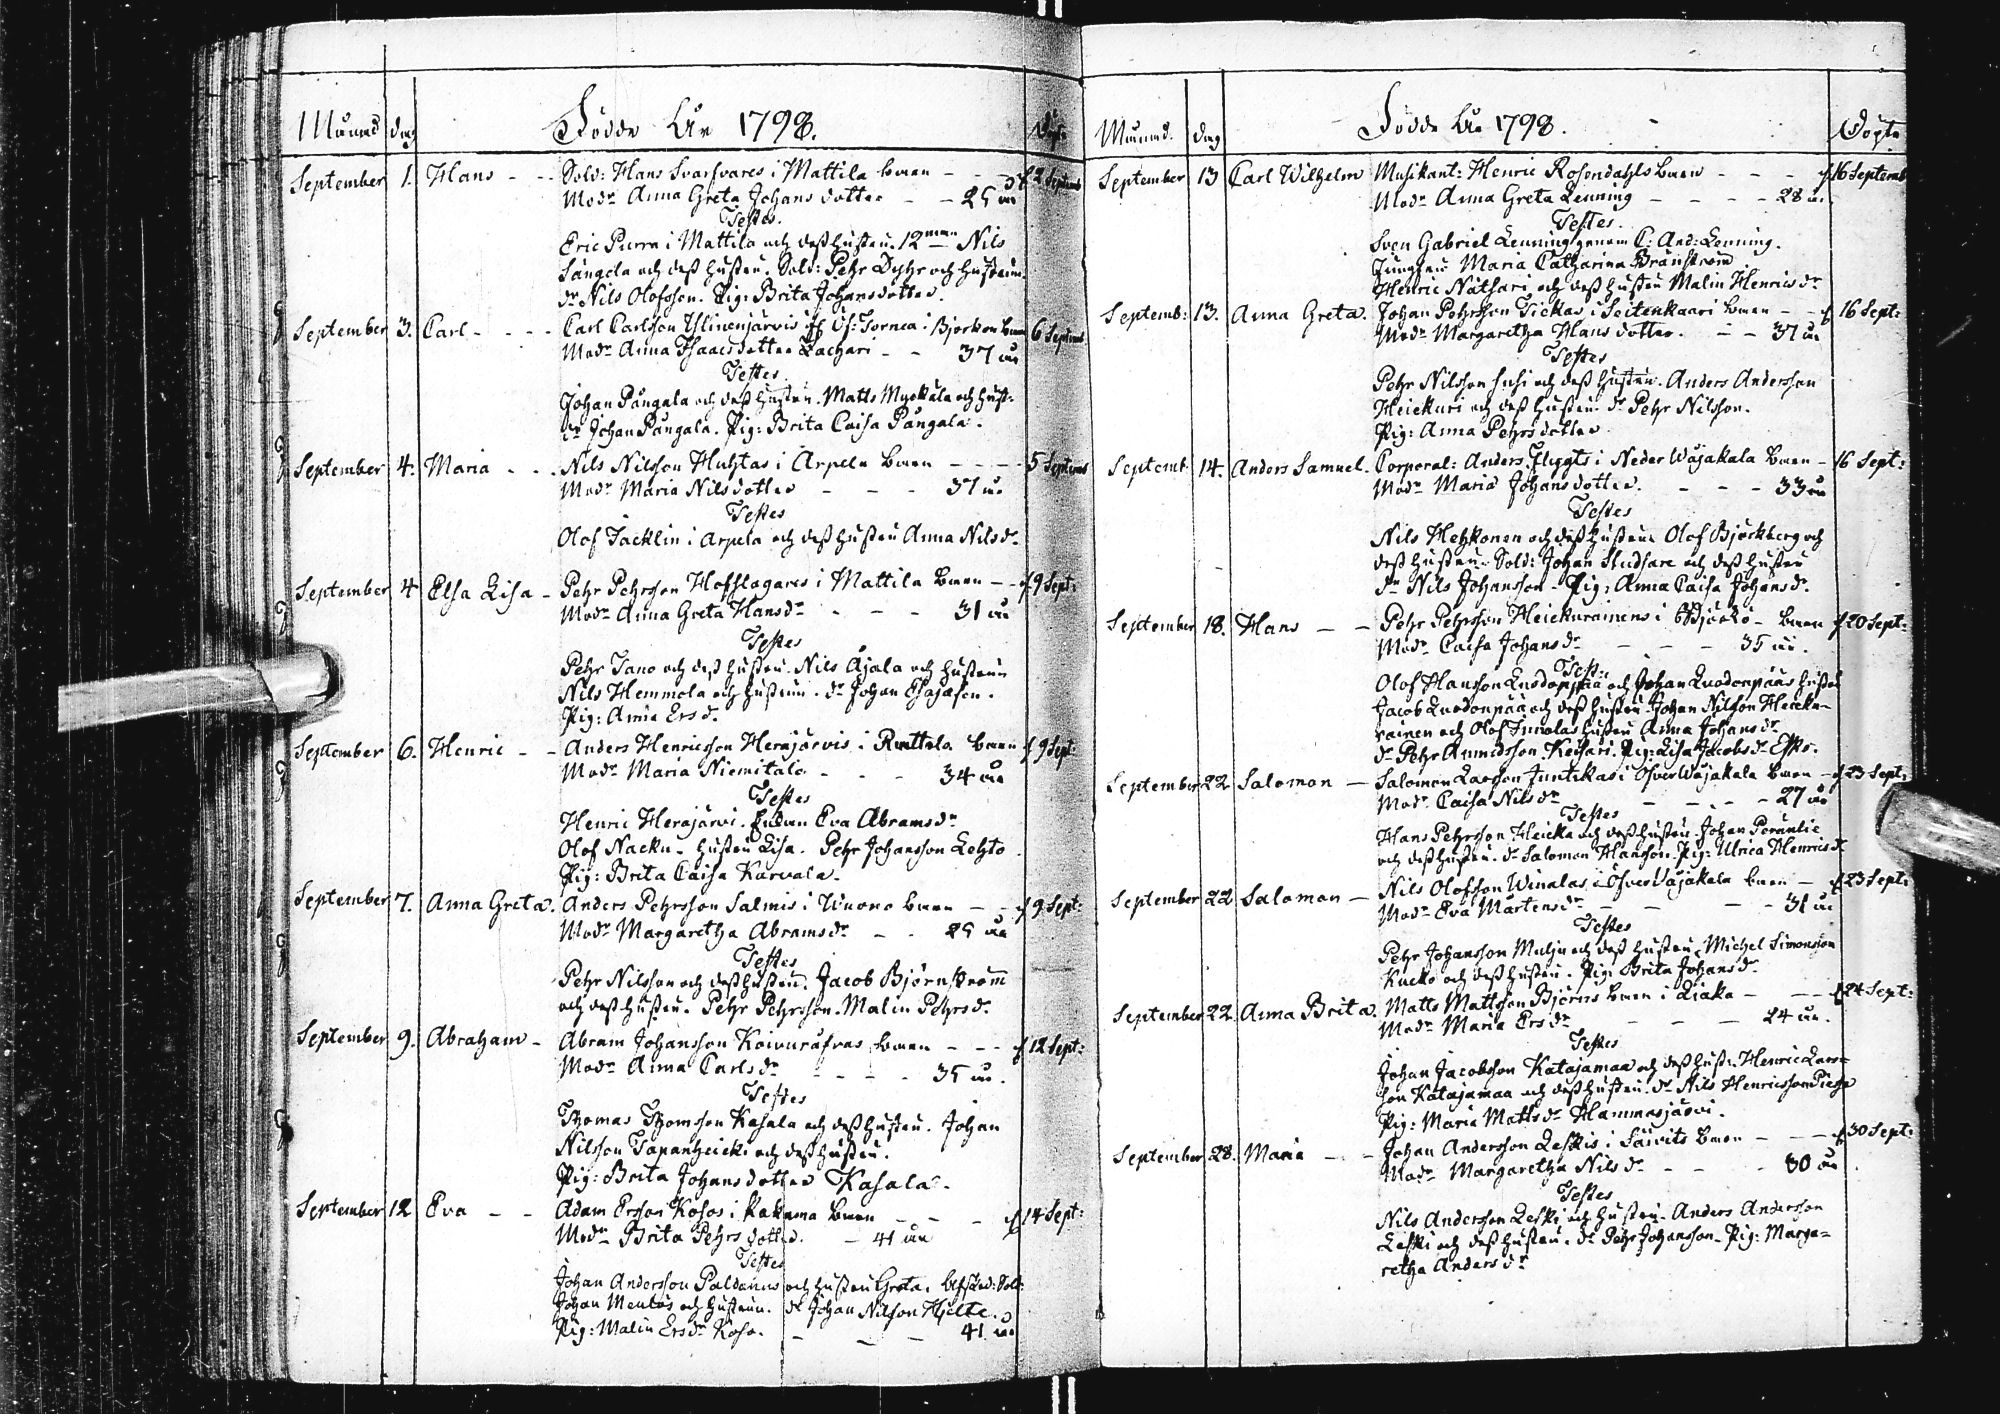 Månad dag Födde År 1798. Döpte
September 1. Hans - - Sold: Hans Svarfvares i Mattila barn - - d 2 Septemb
Modr Anna Greta Johansdotter - - 25 år
Testes.
Eric Purra i Mattila och dess hustru. 12 man Nils
Längela och dess hustru. Sold: Pehr Dyhr och hustrun.
dr Nils Olofsson. Pig: Brita Johansdotter.
September 3. Carl - - - - Carl Carlsson Ylinenjärvis fr Öf: Tornea i Björkön barn 6 Septemb
Modr Anna Isaacsdotter Zachari - - 37 år
Testes
Johan Pångala och dess hustru. Matts Myckala och hust:
dr Johan Pångala. Pig: Brita Caisa Pångala.
September 4. Maria - - . Nils Nilsson Huhtas i Arpela barn - - - - 5 Septemb
Modr Maria Nilsdotter - - - 37 år
Testes
Olof Jacklin i Arpela och dess hustru Anna Nilsdr
September 4 Elsa Lisa - Pehr Pehrsson Hofslagares i Mattila barn - - d 9 Sept:
Modr Anna Greta Hansdr - - - 31 år
Testes
Pehr Tano och dess hustru. Nils Äjala och hustrun
Nils Hemmola och hustrun. dr Johan
Pig: Anna Ersd.
September 6. Henric - - Anders Henricsson Herajärvis i Rattala barn d 9 Sept:
Modr Maria Niemitalo - - - 34 år
Testes
Henric Herajärvi. Enkan Eva Abramsdr
Olof Nacku - hustru Lisa. Pehr Johansson Lehto
Pig: Brita Caisa Karvala.
September 7. Anna Greta. Anders Pehrsson Salmis i Wuono barn - - d 9 Sept:
Modr Margaretha Abramsdr - - 25 år
Testes
Pehr Nilsson och dess hustru. Jacob Björnström
och dess hustru. Pehr Pehrsson. Malin Pehrsd.
September 9. Abraham - Abram Johansson Koivuråfvas barn - - - d 12 Sept:
Modr Anna Carlsdr - - - - 35 år.
Testes
Thomas Thomsson Kasala och dess hustru. Johan
Nilsson Tapanheicki och dess hustru.
Pig: Brita Johansdotter Kasala.
September 12 Eva - - Adam Ersson Kosos i Kakama barn - - - d 14 Sept:
Modr Brita Pehrsdotter. - 41 år
Testes
Johan Andersson Paldanus och hustru Greta. afsked: Sold:
Johan Mentos och hustrun. dr Johan Nilsson Hjelte.
Pig: Malin Ersdr Koso. - - - 41 år
Månad. dag Födde År 1798. Döpte
September 13 Carl Wilhelm Musikant: Henric Rosendahls barn - - - - d 16 Septemb
Modr Anna Greta Lenning - - - - 28 år
Testes.
Sven Gabriel Lenning genom C: And: Lenning.
Jungfru Maria Catharina Brännström
Henric Nathari och dess hustru Malin Henricsdr
Septemb: 13. Anna Greta. Johan Pehrsson Tickas i Seitenkaari barn - - d 16 Sept:
Modr Margaretha Hansdotter. - - 37 år
Testes
Pehr Nilsson Susi och dess hustru. Anders Andersson
Heickuri och dess hustru dr Pehr Nilsson.
Pig: Anna Pehrsdotter
Septemb. 14. Anders Samuel. Corporal: Anders Flygts i Neder Wajakala barn - 16 Sept:
Modr Maria Johansdotter. - - - 33 år
Testes
Nils Hehkonen och dess hustru. Olof Björkberg och
dess hustru. Sold: Johan Studsare och dess hustru
dr Nils Johansson. Pig: Anna Caisa Johansd.
September 18. Hans - - Pehr Pehrsson Heickurainens i Björkö - barn d 20 Sept:
Modr Caisa Johansdr - - - 35 år.
Test:
Olof Hansson Luodonpää och Johan Luodonpääs hustru
Jacob Luodonpää och dess hustru. Johan Nilsson Heicku-
rainen och Olof hustru Anna Johansdr
dr Pehr Anundsson Keisari. Pig: Lisa Jacobsdr Esko.
September 22 Salomon - Salomon Larsson Juntikas i Öfver Wajakala barn - d 23 Sept:
Modr Caisa Nilsdr - - - - 27 år
Testes
Hans Pehrsson Heicka och dess hustru. Johan
och dess hustru. dr Salomon Hansson. Pig: Ulrica Henricsdr
September 22 Salomon - Nils Olofsson Winalas i Öfver Wajakala barn - d 23 Sept:
Modr Eva Mårtensdr - - - - 31 år
Testes
Pehr Johansson Malju och dess hustru. Michel Simonsson
Kucko och dess hustru. Pig: Brita Johansdr
September 22. Anna Brita. Matts Mattsson Björns barn i Liaka - - - d 24 Sept:
Modr Maria Ersdr - - - 24 år.
Testes
Johan Jacobsson Katajamaa och dess hust: Henric Lars-
son Katajamaa och dess hustru. dr Nils Henricsson
Pig: Maria Mattsdr Hammasjärvi.
September 28. Maria - - Johan Andersson Leskis i Säivits barn - - - d 30 Sept:
Modr Margaretha Nilsdr - - - 30 år
Testes
Nils Andersson Leski och hustru. Anders Andersson
Leski och dess hustru. dr Pehr Johansson. Pig: Marga-
retha Andersdr